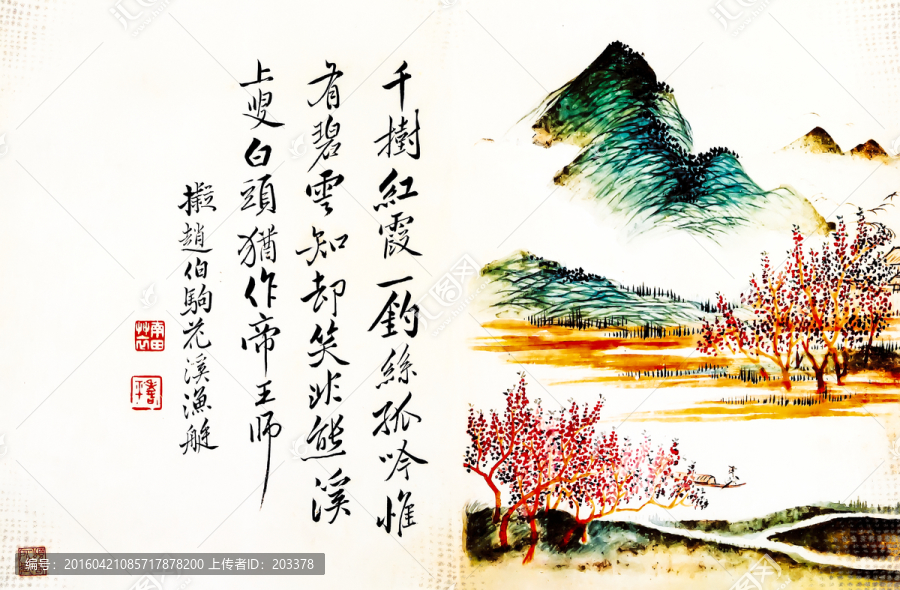 千樹紅霞一釣絲孤吟惟
有碧雲知却笑非熊溪
上叟白頭猶作帝王師
擬趙伯駒花溪漁艇
南田
壽平
编号：20160421085717878200 上传者ID：203378